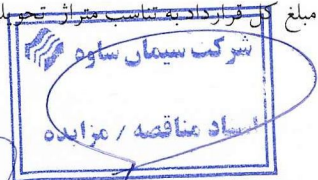 مبلغ کل قرارداد به تناسب متراژ تحویل
شرکت سیمان ساوه
اسناد مناقصه / مزایده